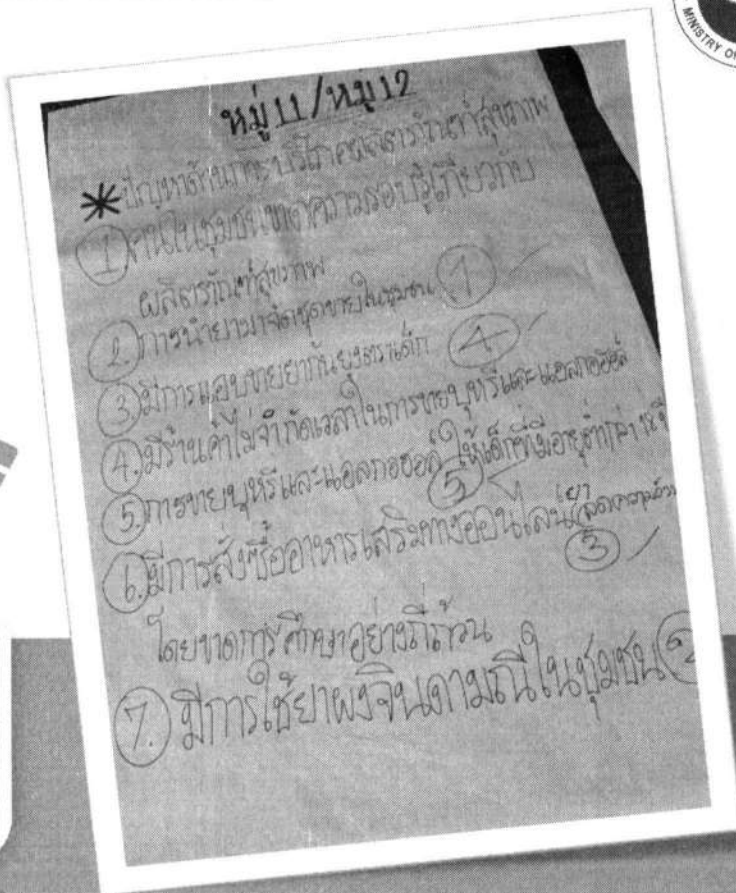 MINISTRY OF
หมู่ 11/หมู่ 12
*ปัญหาด้านการบริโภคผลิตภัณฑ์สุขภาพ
1 คนในชุมชนขาดความรอบรู้เกี่ยวกับ
ผลิตภัณฑ์สุขภาพ
2. การนำยามาจัดชุดขายในชุมชน 1 ✓
3. มีการแอบขายยากันยุงตราเด็ก 4 ✓
4. มีร้านค้าไม่จำกัดเวลาในการขายบุหรี่และแอลกอฮอล์
5. การขายบุหรี่และแอลกอฮอล์ ให้เด็กที่มีอายุต่ำกว่า
5 ✓
6. มีการสั่งซื้ออาหารเสริมทางออนไลน์
3 ✓
โดยขาดการศึกษาอย่างถี่ถ้วน
7. มีการใช้ยาผงจินดามณีในชุมชน 2